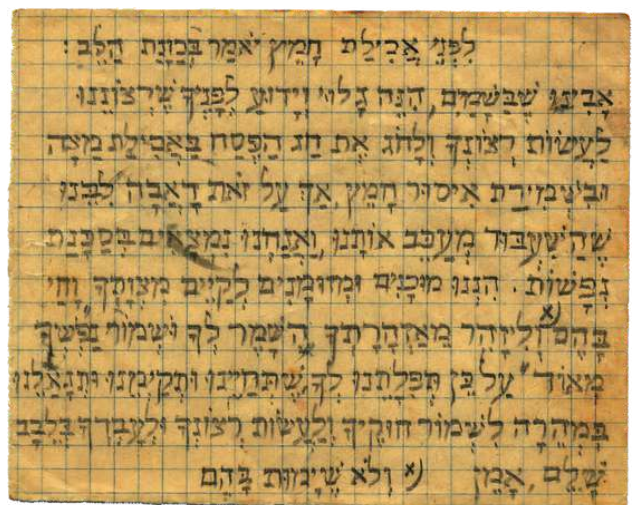 לִפְנֵי אֲכִילַת חָמֵץ יֹאמַר בְּכַוָּנַת הַלֵּב :
אָבִינוּ שֶׁבַּשָּׁמַיִם, הִנֵּה גָלוּי וְיָדוּעַ לְפָנֶיךָ שֶׁרְצוֹנֵנוּ
לַעֲשׂוֹת רְצוֹנְךָ וְלָחֹג אֶת חַג הַפֶּסַח בַּאֲכִילַת מַצָּה
וּבִשְׁמִירַת אִיסוּר חָמֵץ, אַךְ עַל זֹאת דָאֲבָה לִבֵּנוּ
שֶׁהַשִּׁעְבּוּד מְעַכֵּב אוֹתָנוּ, וַאֲנַחְנוּ נִמְצָאִים בְּסַכָּנַת
נְפָשׁוֹת. הִנְנוּ מוּכָנִים וּמְזוּמָּנִים לְקַיֵּים מִצְוָתְךָ ״וָחַי
בָּהֶם״ x) וְלִיזָּהֵר מֵאַזְהָרָתְךָ ״הִשָּׁמֶר לְךָ וּשְׁמוֹר נַפְשְׁךָ
מְאוֹד״ עַל כֵּן תְּפִלָּתֵנוּ לְךָ, שֶׁתְּחַיֵּינוּ וּתְקַיְּמֵנוּ וְתִגְאָלֵנוּ
בִּמְהֵרָה לִשְׁמוֹר חוּקֶיךָ וְלַעֲשׂוֹת רְצוֹנְךָ וּלְעָבְדְּךָ בְּלֵבָב
שָׁלֵם, אָמֵן x) וְלֹא שֶׁיָּמוּת בָּהֶם